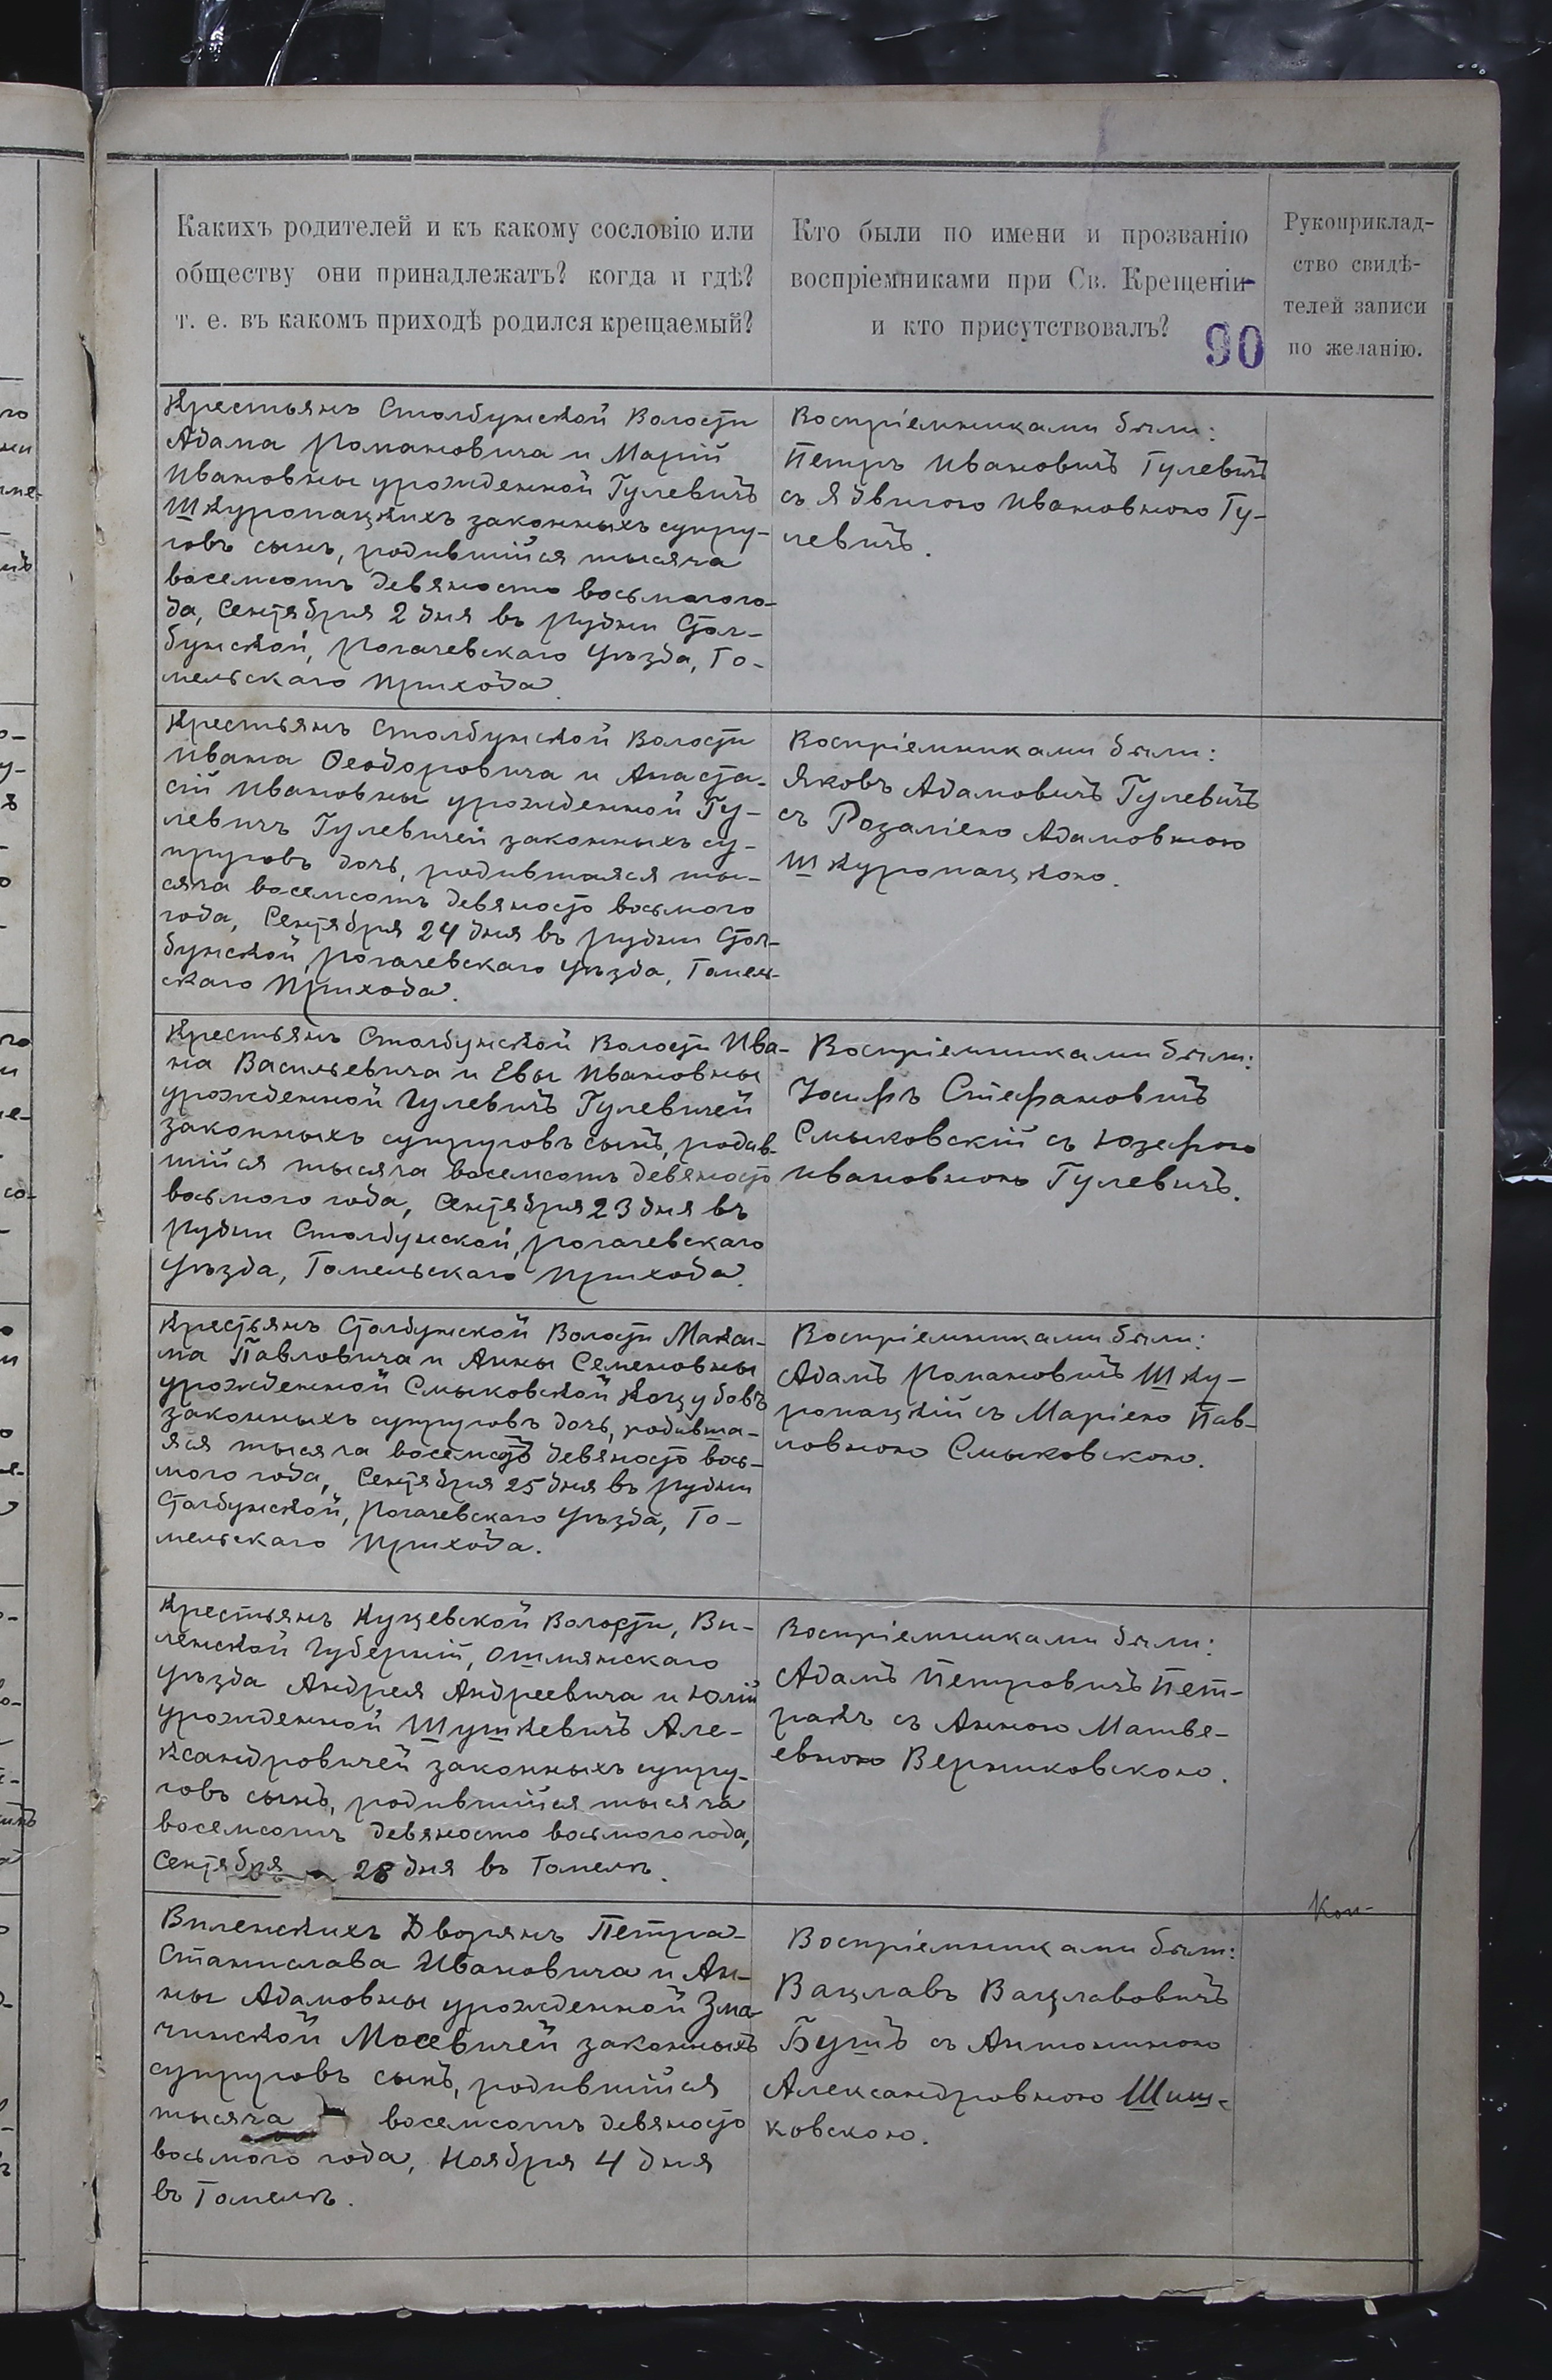 Какихъ родителей и къ какому сословію или
обществу они принадлежатъ? когда и гдѣ?
т. е. въ какомъ приходѣ родился крещаемый?
Кто были по имени и прозванію
воспріемниками при Св. Крещеніи
и кто присутствовалъ?
90
Рукоприклад-
ство свидѣ-
телей записи
по желанію.
Крестьянъ Столбунской Волости
Адама Романовича и Маріи
Ивановны урожденной Гулевичъ
Шкуропацкихъ законныхъ супру-
говъ сынъ, родившійся тысяча
восемсотъ девяносто восьмого го-
да, Сентября 2 дня въ Рудни Стол-
бунской, Рогачевскаго Уѣзда, Го-
мельскаго Прихода.
Воспріемниками были:
Петръ Ивановичъ Гулевичъ
съ Ядвигою Ивановною Гу-
левичъ.
Крестьянъ Столбунской Волости
Ивана Ѳеодоровича и Анаста-
сіи Ивановны урожденной Гу-
левичъ Гулевичей законныхъ су-
пруговъ дочь, родившаяся ты-
сяча восемсотъ девяносто восьмого
года, Сентября 24 дня въ Рудни Стол-
бунской, Рогачевскаго Уѣзда, Гомель-
скаго Прихода.
Воспріемниками были:
Яковъ Адамовичъ Гулевичъ
съ Розаліею Адамовною
Шкуропацкою.
Крестьянъ Столбунской Волости Ива-
на Васильевича и Евы Ивановны
урожденной Гулевичъ Гулевичей
законныхъ супруговъ сынъ, родив-
шійся тысяча восемсотъ девяносто
восьмого года, Сентября 23 дня въ
Рудни Столбунской, Рогачевскаго
Уѣзда, Гомельскаго Прихода.
Воспріемниками были:
Іосифъ Стефановичъ
Смыковскій съ Юзефою
Ивановною Гулевичъ.
Крестьянъ Столбунской Волости Макси-
ма Павловича и Анны Семеновны
урожденной Смыковской Коцубовъ
законныхъ супруговъ дочь, родивша-
яся тысяча восемсотъ девяносто вось-
мого года, Сентября 25 дня въ Рудни
Столбунской, Рогачевскаго Уѣзда, Го-
мельскаго Прихода.
Воспріемниками были:
Адамъ Романовичъ Шку-
ропацкій съ Маріею Пав-
ловною Смыковскою.
Крестьянъ Куцевской Волости, Ви-
ленской Губерніи, Ошмянскаго
Уѣзда Андрея Андреевича и Юліи
урожденной Шушкевичъ Але-
ксандровичей законныхъ супру-
говъ сынъ, родившійся тысяча
восемсотъ девяносто восьмого года,
Сентября 28 дня въ Гомелѣ.
Воспріемниками были:
Адамъ Петровичъ Пет-
ракъ съ Анною Матве-
евною Верниковскою.
Виленскихъ Дворянъ Петра-
Станислава Ивановича и Ан-
ны Адамовны урожденной Зма-
чинской Мосевичей законныхъ
супруговъ сынъ, родившійся
тысяча восемсотъ девяносто
восьмого года, Ноября 4 дня
въ Гомелѣ.
Воспріемниками были:
Вацлавъ Вацлавовичъ
Бушъ съ Антониною
Александровною Шиш-
ковскою.